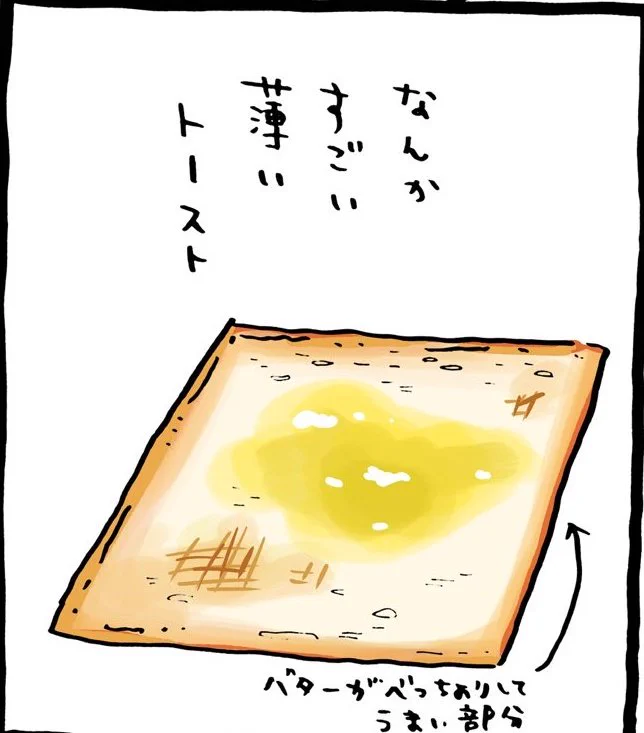 なんか
すごい
薄い
トースト
バターがべっちょりして
うまい部分